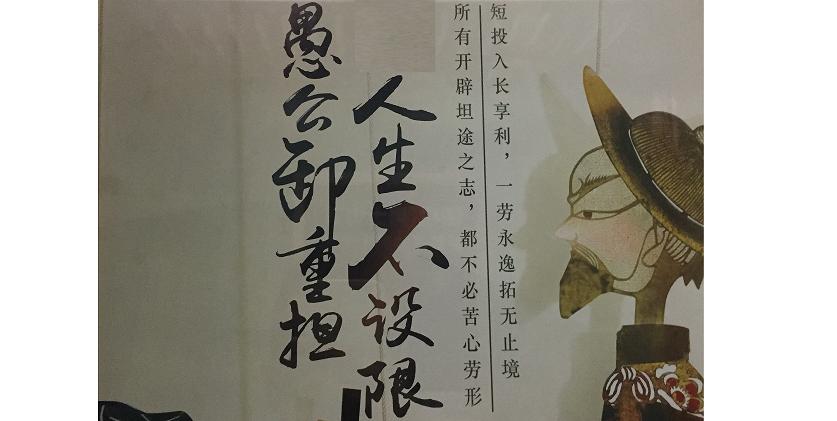 短投入长享利，一劳永逸拓无止境
所有开辟坦途之志，都不必苦心劳形
人生不设限
愚公卸重担